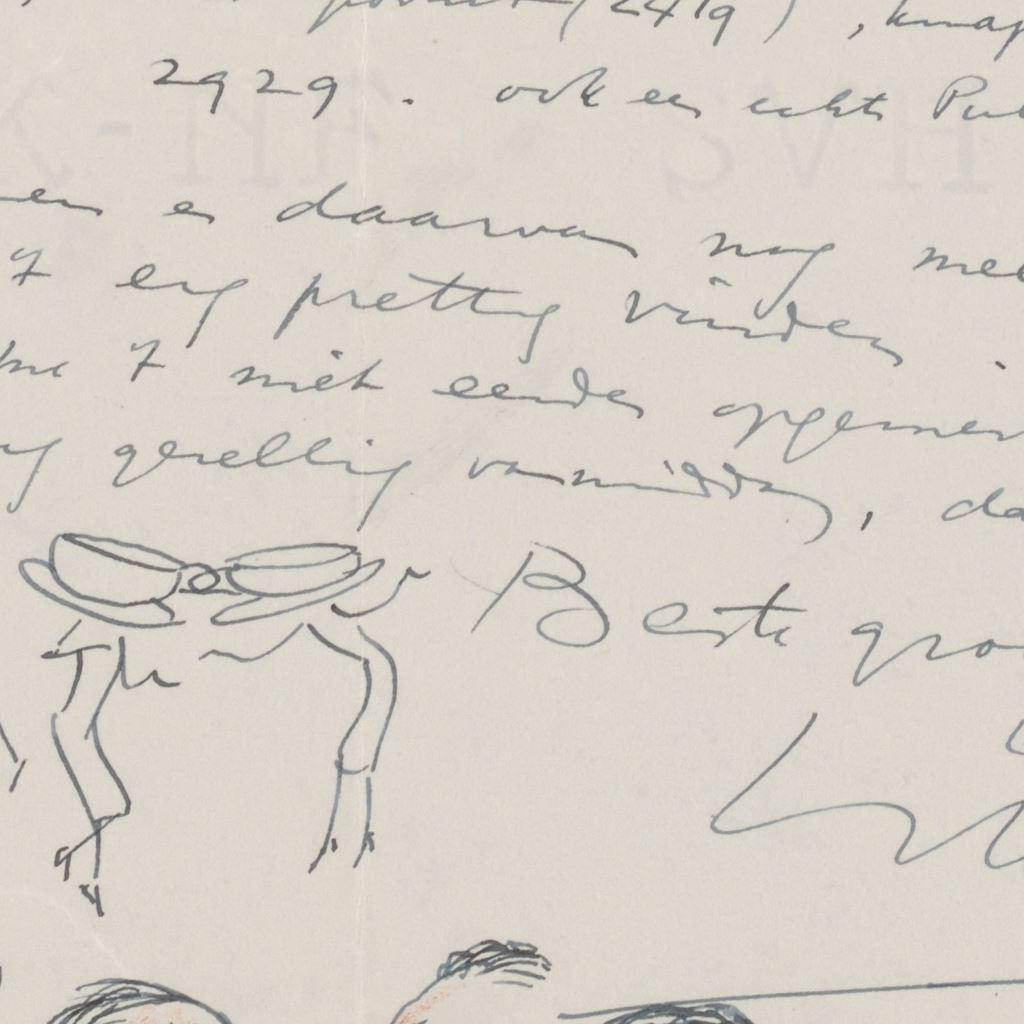 (2419), knap
2929. ook een echte Pu
en er daarvan nog mee
't erg prettig vinden.
't niet eerder opgemer
gezellig vanmiddag, da
Beste gro